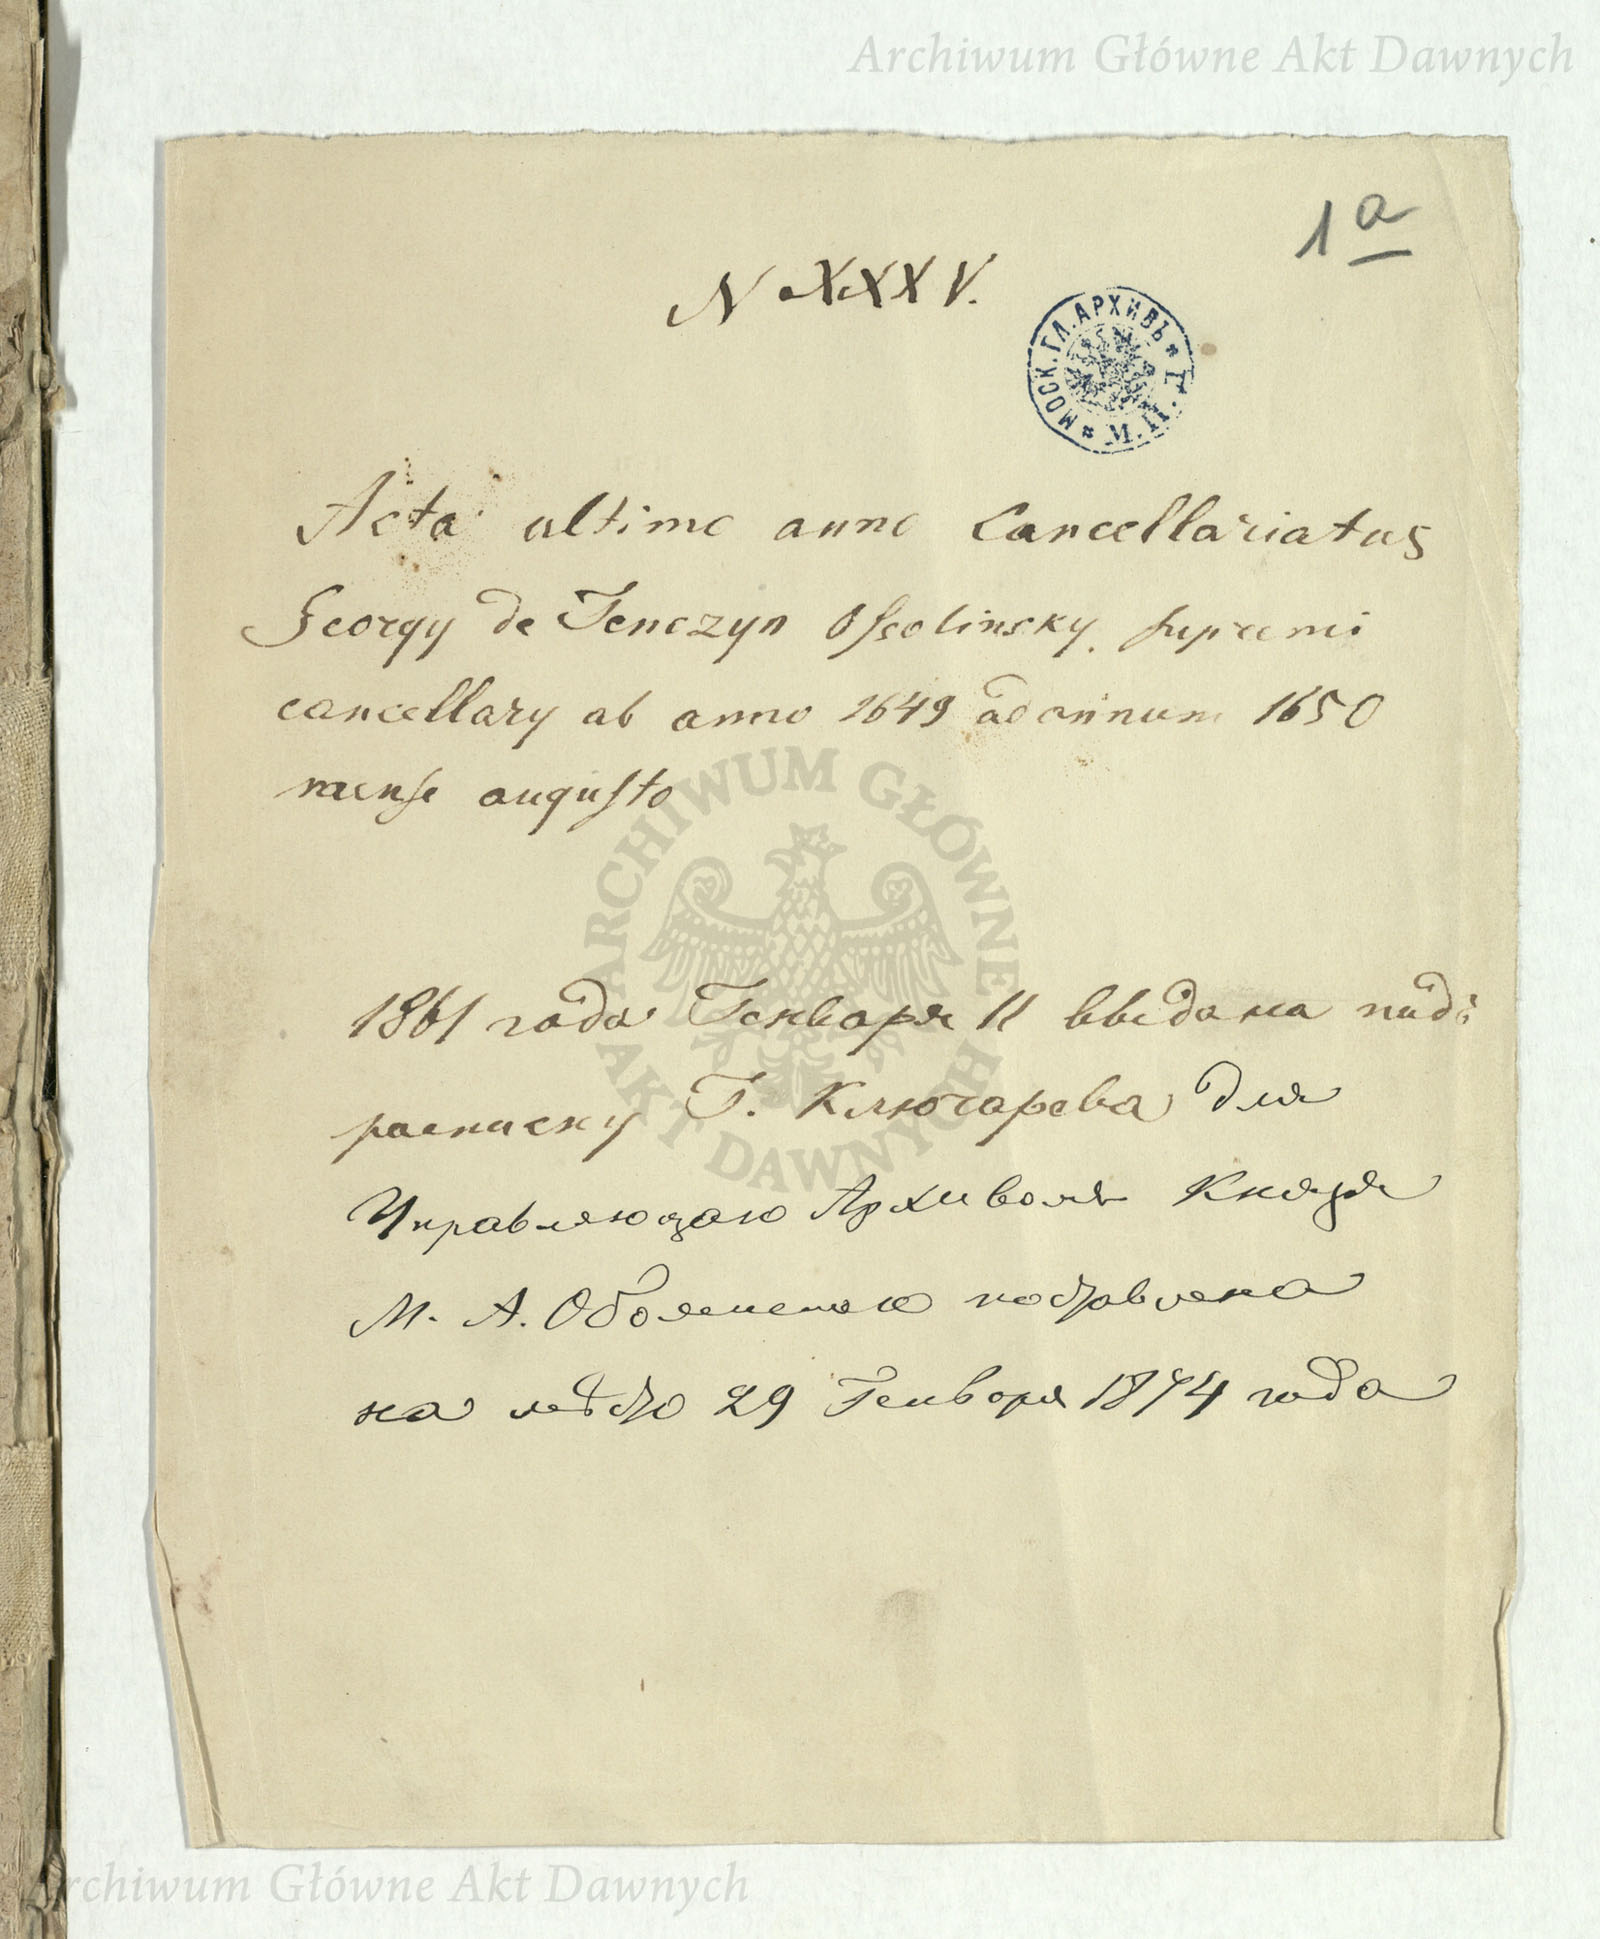 Archiwum Główne Akt Dawnych
1a
N XXXV.
МОСК. ГЛ. АРХИВЪ * М. И. Д. *
Acta ultimo anno Cancellariatus
Georgy de Tenczyn Ossolinsky. supremi
cancellary ab anno 1649 ad annum 1650
mense augusto
ARCHIWUM GŁÓWNE
AKT DAWNYCH
1861 года Генваря 11 выдана подъ
росписку Г. Ключарева для
Управляющаго Архивомъ Князя
М. А. Оболенскаго поставлена
на место 29 Генваря 1874 года
Archiwum Główne Akt Dawnych